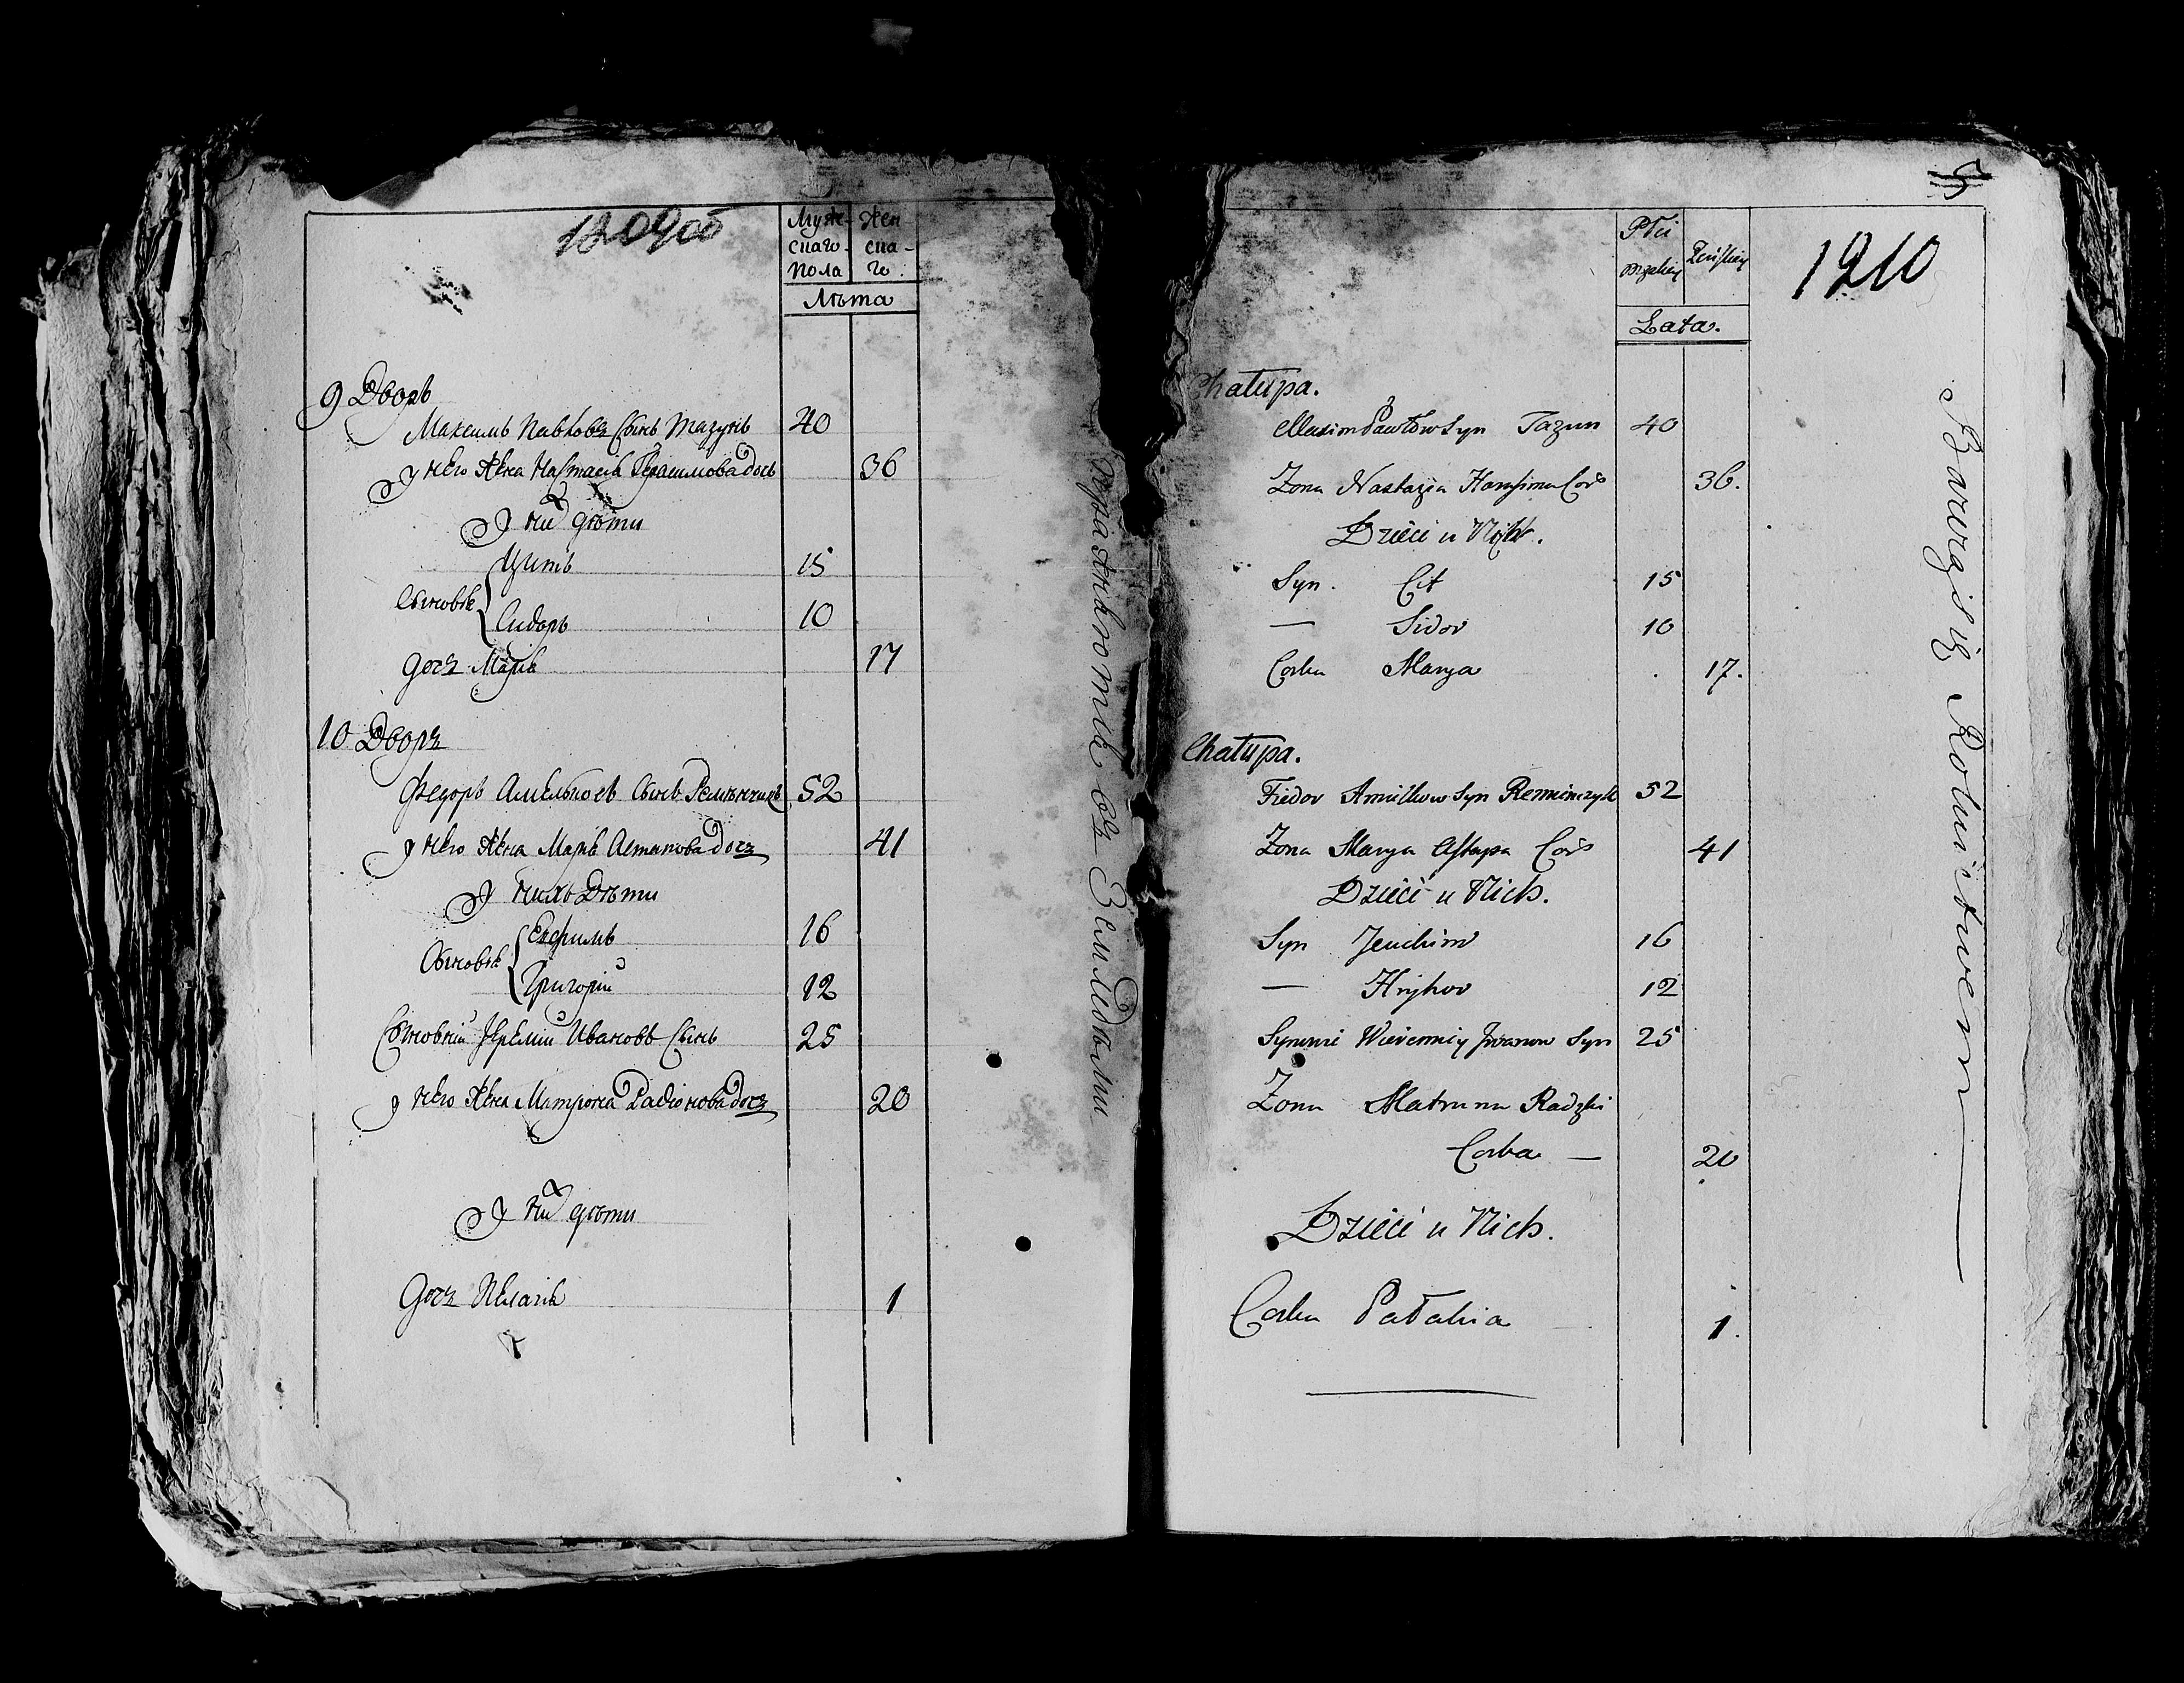 1209 об
Муже-
скаго
пола
Жен
ска-
го
Лѣта
9 Дворъ
Максимъ Павловъ Сынъ Тазунъ 40
у него Жена Настасія Герасимова Дочь 36
У них дѣти
Цитъ 15
Сыновья
Сидоръ 10
дочь Марья 17
10 Дворъ
Федоръ Амельновъ Сынъ Ремѣнчикъ 52
у него Жена Марья Астапова дочь 41
У нихъ Дѣти
Ехфимъ 16
Сыновья
Григорій 12
Сыновній Іеремій Ивановъ Сынъ 25
у него Жена Матрона Радіонова дочь 20
У них дѣти
Дочь Пелагія 1
съ Землѣдѣліи
5
1210
Płci
męskiej
Żeńskiej
Lata.
Chałupa.
Maxim Pawłow Syn Tazun 40
Zona Nastazia Harasima Cor 36.
Dzieci u Nich.
Syn. Cit 15
— Sidor 10
Corka Marya 17.
Chałupa.
Fiedor Amilkow Syn Remieńczyk 52
Zona Marya Astapa Cor 41
Dzieci u Nich.
Syn Jeuchim 16
— Hryhor 12
Synowie Wieremiey Jwanow Syn 25
Zona Matruna Radzki
Corka — 20
Dzieci u Nich.
Corka Pałahia 1.
Bawią się Rolnictwem —